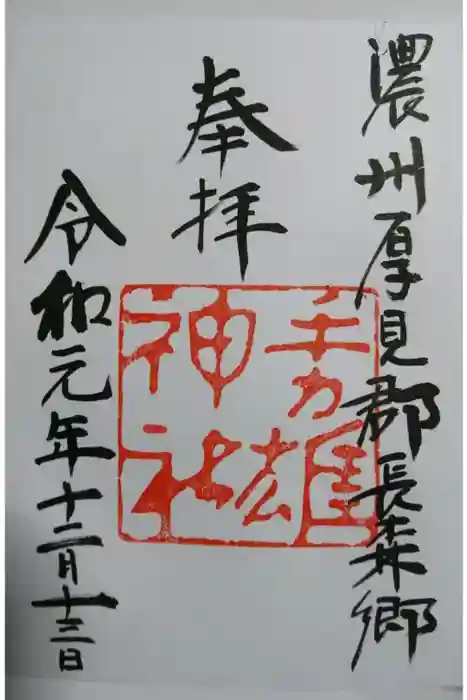 濃州厚見郡長森郷
奉拝
手力雄
神社
令和元年十二月十三日